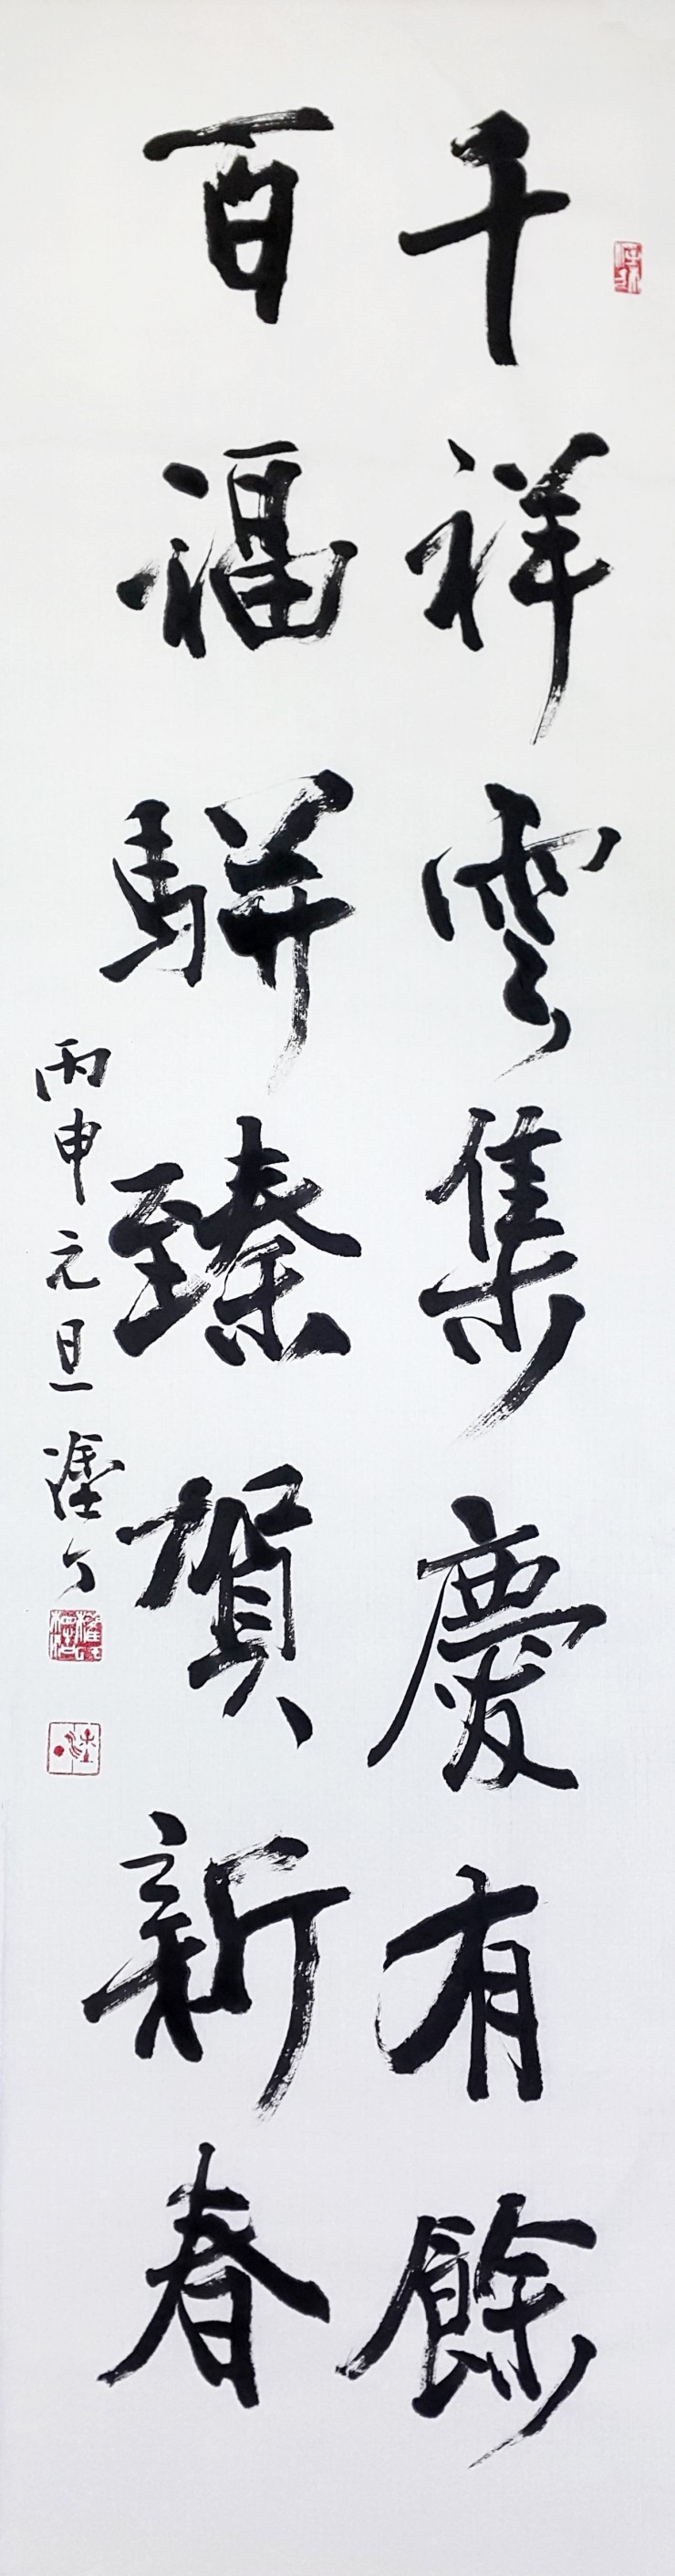 千祥雲集慶有餘
百福駢臻賀新春
丙申元旦